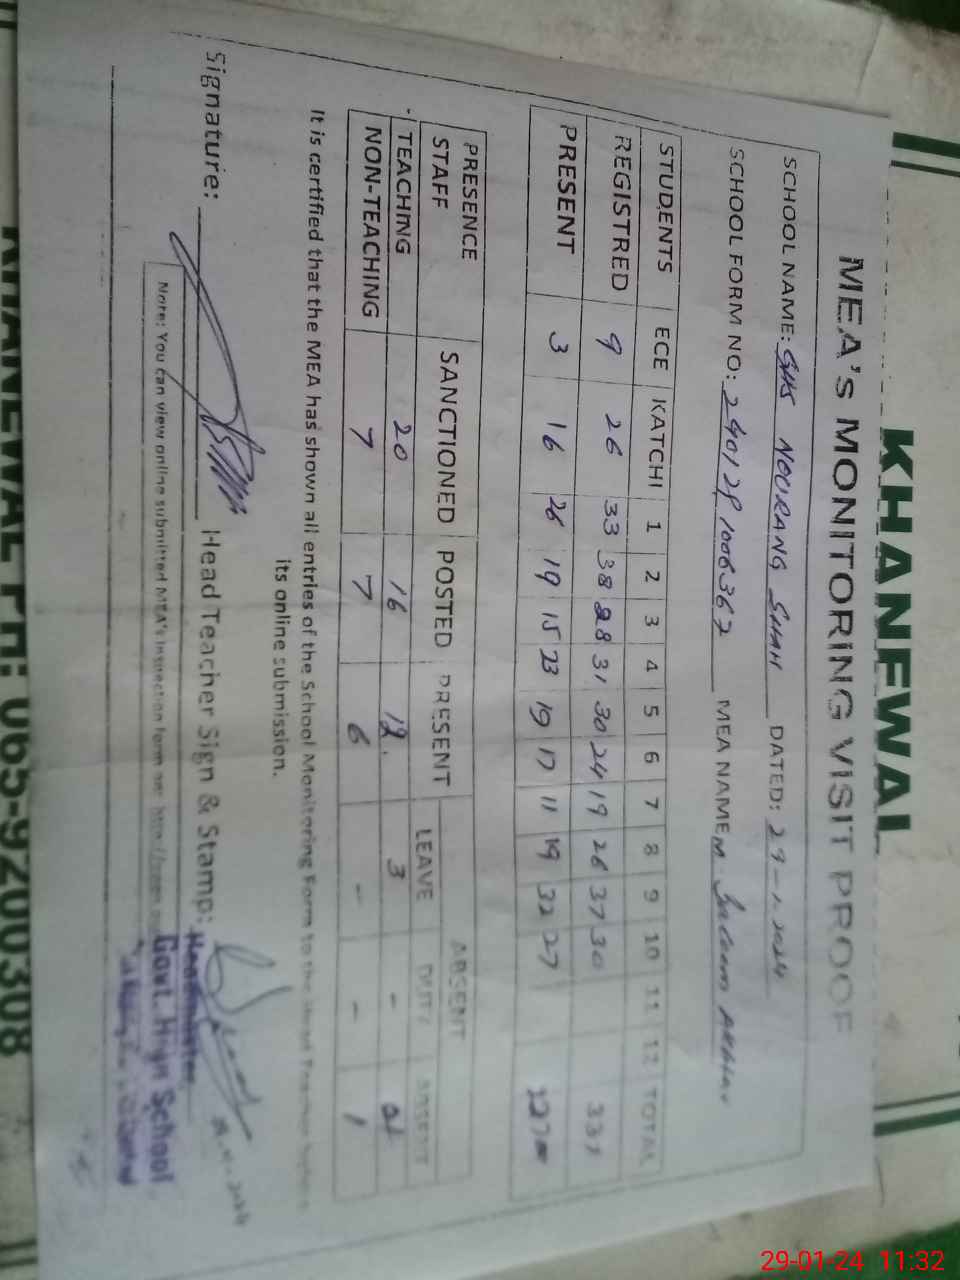 KHANEWAL
MEA's MONITORING VISIT PROOF
SCHOOL NAME: GHS NOURANG SHAH DATED: 29-1-2024
SCHOOL FORM NO: MEA NAME M. Akhtar
STUDENTS ECE KATCHI 1 2 3 4 5 6 7 8 9 10 11 12 TOTAL
REGISTRED 9 26 33 38 28 31 30 24 19 26 37 30 331
PRESENT 3 16 26 19 15 23 19 17 11 19 32 27
PRESENCE ABSENT
STAFF SANCTIONED POSTED PRESENT LEAVE DUTY ABSENT
TEACHING 20 16 12. 3 -
NON-TEACHING 7 7 6 - - 1
It is certified that the MEA has shown all entries of the School Monitoring Form to the Head Teacher before
its online submission.
Signature: Head Teacher Sign & Stamp:
Headmaster
Govt. High School
Note: You can view online submitted MEA's Inspection form on: http://
KHANEWAL PH: 065-9200308
29-01-24 11:32